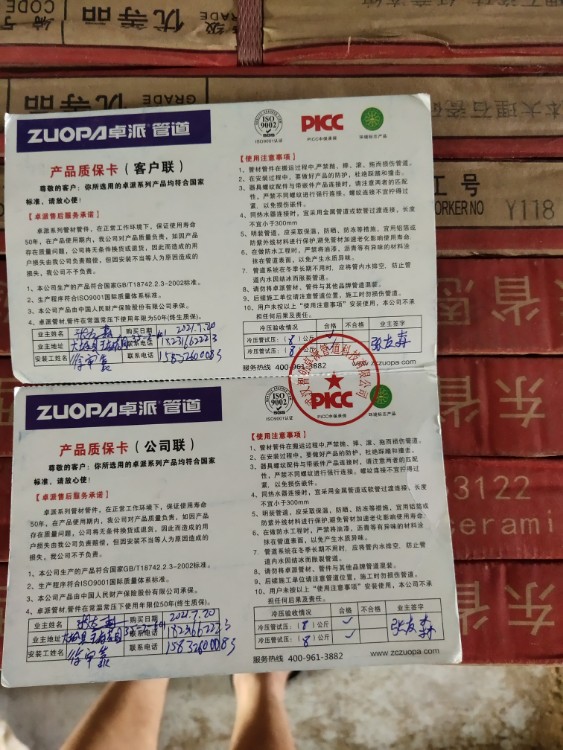 CODE
优等品
GRADE
优等品
GRADE
本大理石瓷砖
工号
WORKER NO
Y118
ZUOPA 卓派 管道
ISO
9002
ISO9002认证
PICC
PICC中国承保
环境标志产品
产品质保卡(客户联)
尊敬的客户:你所选用的卓派系列产品均符合国家
标准,请放心使!
【卓派售后服务承诺】
卓派系列管材管件,在正常工作环境下,保证使用寿命
50年,在产品使用期内,我公司对产品质量负责,如因产品
存在质量问题,公司将无条件换货或退货,因此而造成的用
户损失由我公司负责赔偿,但因安装不当等人为原因造成的
损失,我公司不予负责。
1、本公司生产的产品符合国家GB/T18742.2.3-2002标准。
2、生产程序符合ISO9001国际质量体系标准。
3、本公司产品由中国人民财产保险股份有限公司承保。
4、卓派管材管件在常温常压下使用年限为50年(终生质保)。
业主姓名
购买日期
2021.7.20
业主地址
联系电话
18223662223
安装工姓名
联系电话
15832600083
【使用注意事项】
1、管材管件在搬运过程中,严禁抛、摔、滚、拖而损伤管道。
2、在安装过程中,要做好产品的防护,杜绝踩踏和撞击。
3、器具螺纹配件与带嵌件产品连接时,请注意两者的匹配
性,严禁不同螺纹进行强行连接。螺纹连接不宜拧得过
紧,以免损伤嵌件。
4、同热水器连接时,宜采用金属管或软管过渡连接,长度
不宜小于300mm
5、明装管道,应采取保温、防晒、防水等措施,宜用铝箔或
防紫外线材料进行保护,避免管材加速老化影响使用寿命
6、在做防水工程时,严禁将油漆,沥青等有异味的材料涂
抹在管道表面,以免产生水质异味。
7、管道系统在冬季长期不用时,应将管内水熔空,防止管
道内水因结冰而胀裂管道。
8、请勿将卓派管材、管件与其他品牌管道混装。
9、后续施工单位请注意管道位置,施工时勿损伤管道。
10、用户未按以上“使用注意事项”安装使用,本公司不承
担任何后果及责任。
冷压验收情况 合格 不合格 业主签字
冷压管试压:(8)公斤
冷压管试压:(8)公斤
张友森
服务热线 400-961-3882
ZUOPA 卓派 管道
ISO
9002
ISO9002认证
PICC
PICC中国承保
环境标志产品
产品质保卡(公司联)
尊敬的客户:你所选用的卓派系列产品均符合国家
标准,请放心使!
【卓派售后服务承诺】
卓派系列管材管件,在正常工作环境下,保证使用寿命
50年,在产品使用期内,我公司对产品质量负责,如因产品
存在质量问题,公司将无条件换货或退货,因此而造成的用
户损失由我公司负责赔偿,但因安装不当等人为原因造成的
损失,我公司不予负责。
1、本公司生产的产品符合国家GB/T18742.2.3-2002标准。
2、生产程序符合ISO9001国际质量体系标准。
3、本公司产品由中国人民财产保险股份有限公司承保。
4、卓派管材管件在常温常压下使用年限为50年(终生质保)。
业主姓名
购买日期
2021.7.20
业主地址
联系电话
18223662223
安装工姓名
联系电话
15832600083
【使用注意事项】
1、管材管件在搬运过程中,严禁抛、摔、滚、拖而损伤管道。
2、在安装过程中,要做好产品的防护,杜绝踩踏和撞击。
3、器具螺纹配件与带嵌件产品连接时,请注意两者的匹配
性,严禁不同螺纹进行强行连接。螺纹连接不宜拧得过
紧,以免损伤嵌件。
4、同热水器连接时,宜采用金属管或软管过渡连接,长度
不宜小于300mm
5、明装管道,应采取保温、防晒、防水等措施,宜用铝箔或
防紫外线材料进行保护,避免管材加速老化影响使用寿命
6、在做防水工程时,严禁将油漆,沥青等有异味的材料涂
抹在管道表面,以免产生水质异味。
7、管道系统在冬季长期不用时,应将管内水熔空,防止管
道内水因结冰而胀裂管道。
8、请勿将卓派管材、管件与其他品牌管道混装。
9、后续施工单位请注意管道位置,施工时勿损伤管道。
10、用户未按以上“使用注意事项”安装使用,本公司不承
担任何后果及责任。
冷压验收情况 合格 不合格 业主签字
冷压管试压:(8)公斤
冷压管试压:(8)公斤
张友森
服务热线 400-961-3882 www.zczuopa.com
东省恩
3122
cerami
东省